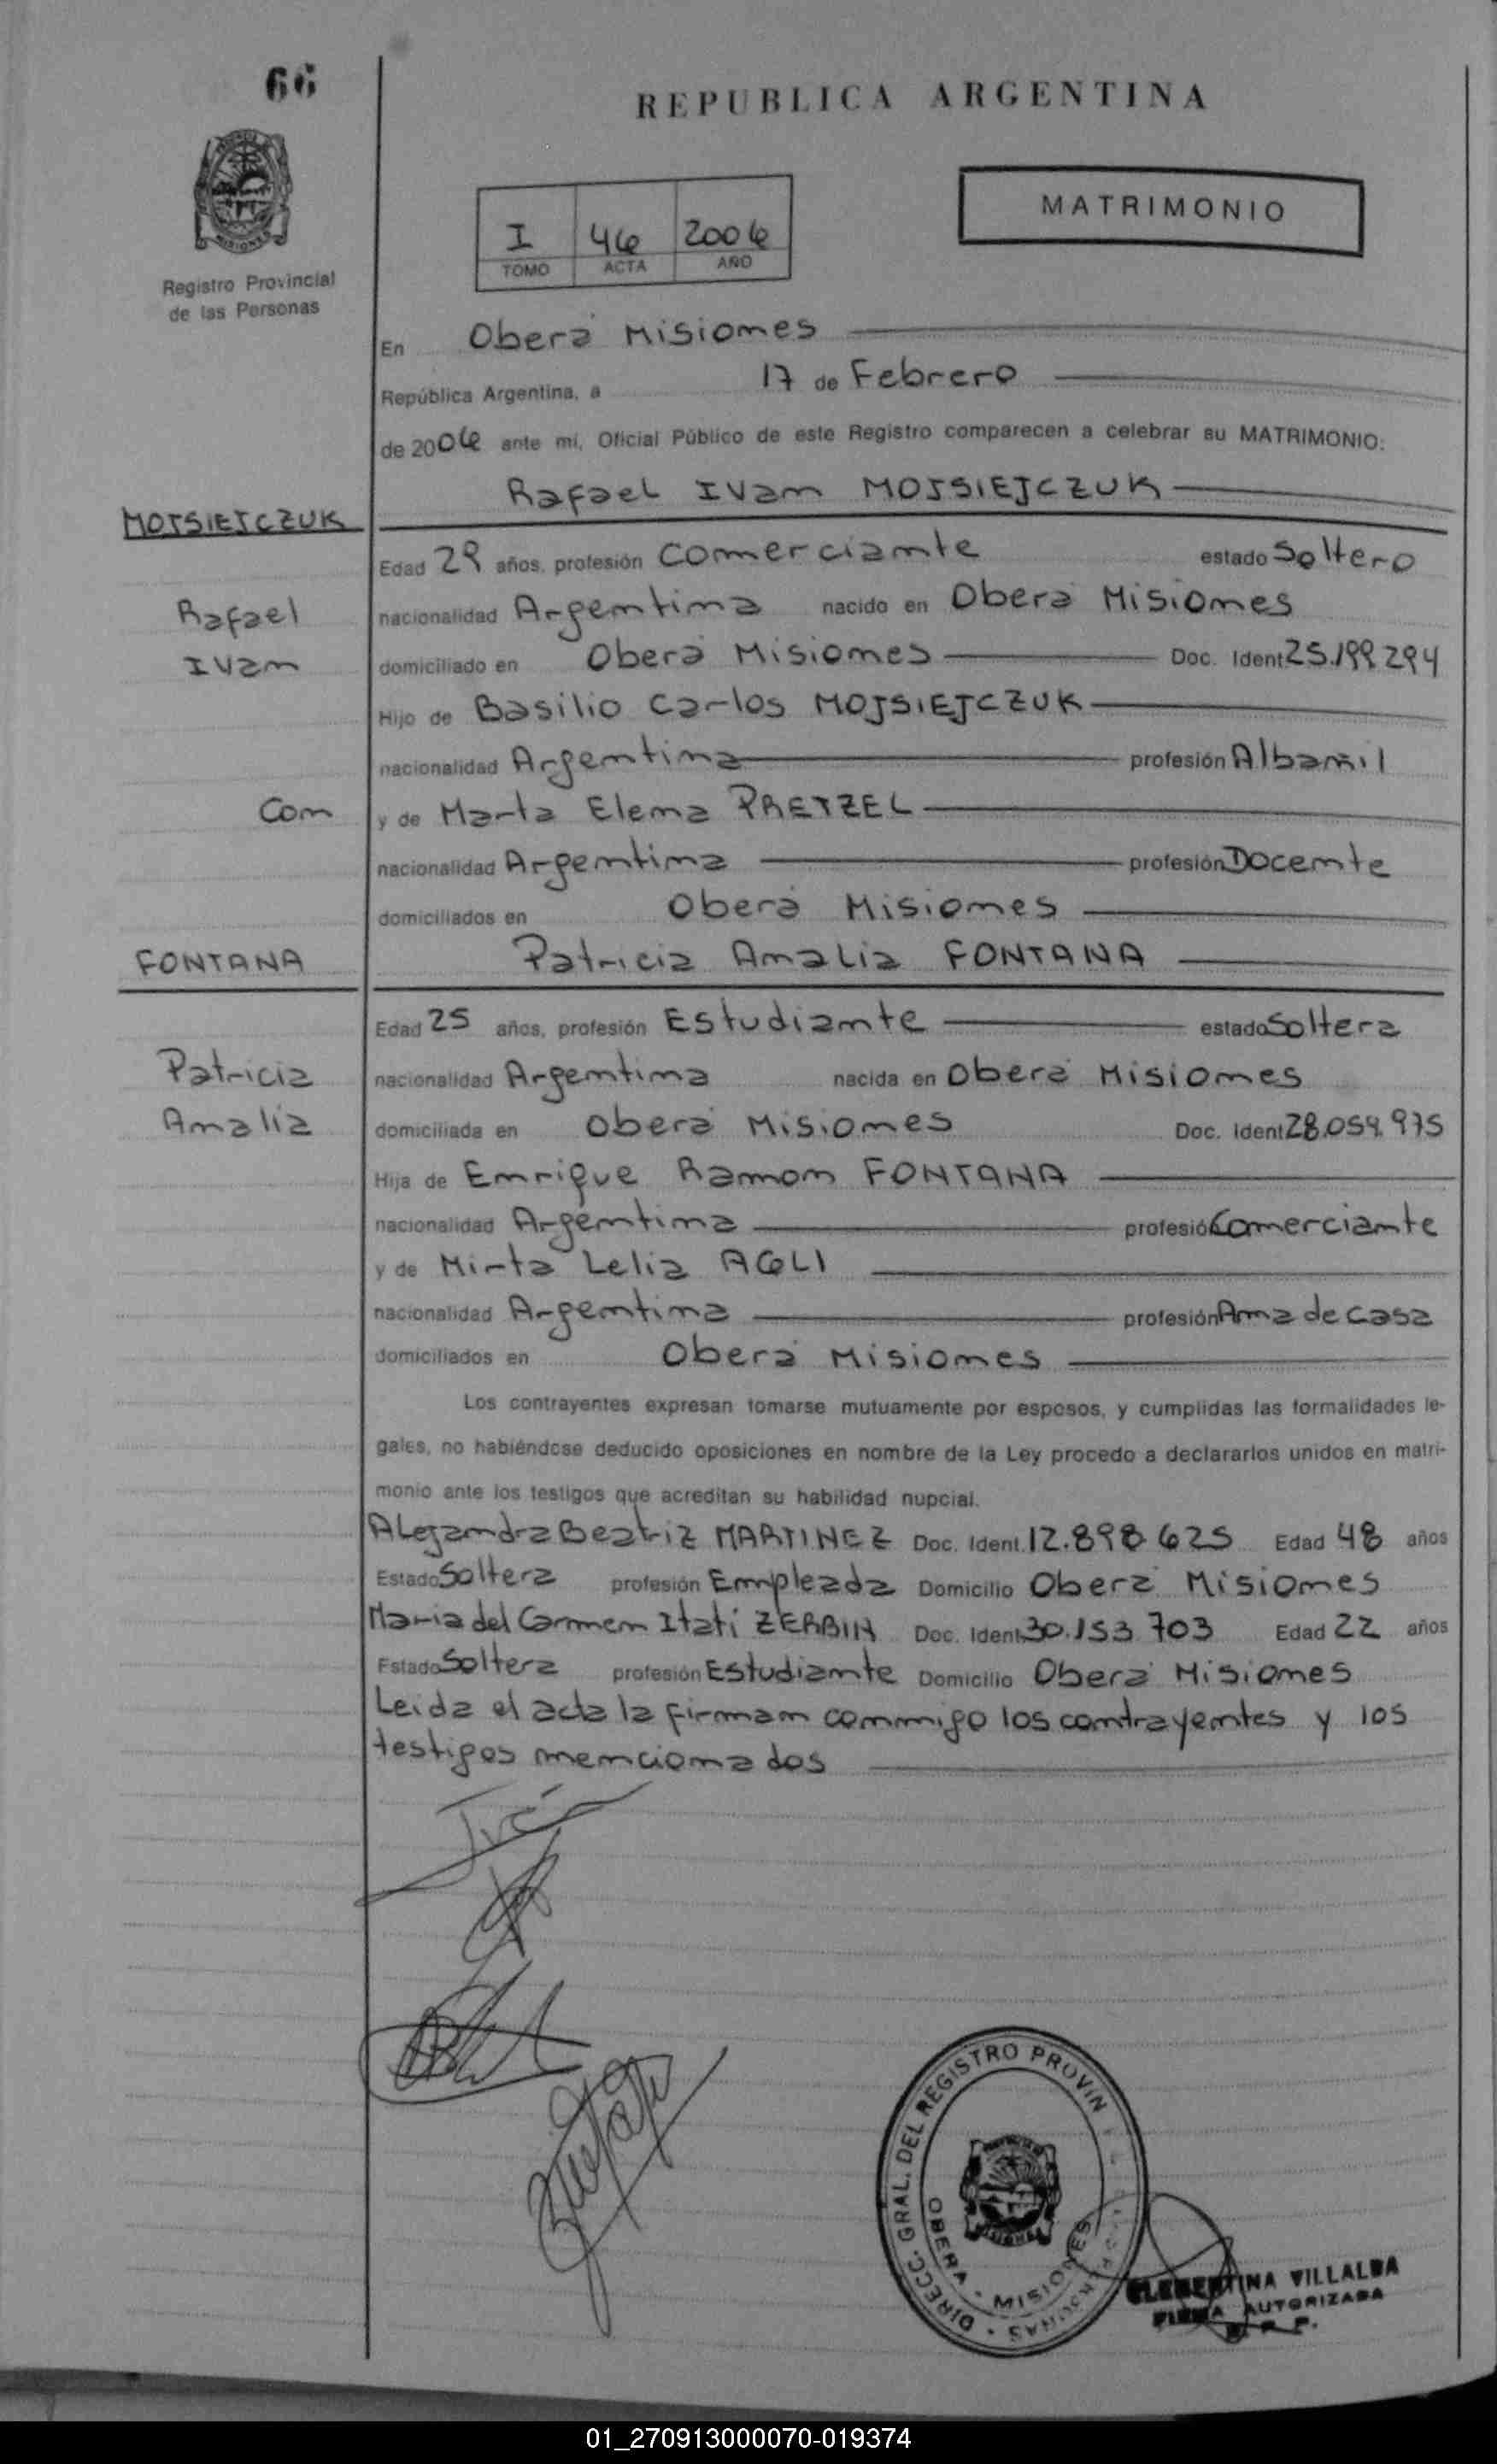 66
REPUBLICA ARGENTINA
MATRIMONIO
I 46 2006
TOMO ACTA AÑO
Registro Provincial
de las Personas
En Oberá Misiones
República Argentina, a 17 de Febrero
de 2006 ante mí, Oficial Público de este Registro comparecen a celebrar su MATRIMONIO:
Rafael Ivan MOJSIEJCZUK
MOJSIEJCZUK
Edad 29 años, profesión Comerciante estado Soltero
Rafael
nacionalidad Argentina nacido en Oberá Misiones
Ivan
domiciliado en Oberá Misiones Doc. Ident 25.199.294
Hijo de Basilio Carlos MOJSIEJCZUK
nacionalidad Argentina profesión Albañil
Con
y de Marta Elena PRETZEL
nacionalidad Argentina profesión Docente
domiciliados en Oberá Misiones
FONTANA
Patricia Amalia FONTANA
Edad 25 años, profesión Estudiante estado Soltera
Patricia
nacionalidad Argentina nacida en Oberá Misiones
Amalia
domiciliada en Oberá Misiones Doc. Ident 28.059.975
Hija de Enrique Ramon FONTANA
nacionalidad Argentina profesión Comerciante
y de Mirta Lelia AGLI
nacionalidad Argentina profesión Ama de Casa
domiciliados en Oberá Misiones
Los contrayentes expresan tomarse mutuamente por esposos, y cumplidas las formalidades le-
gales, no habiéndose deducido oposiciones en nombre de la Ley procedo a declararlos unidos en matri-
monio ante los testigos que acreditan su habilidad nupcial.
Alejandra Beatriz MARTINEZ Doc. Ident. 12.898.625 Edad 48 años
Estado Soltera profesión Empleada Domicilio Oberá Misiones
Maria del Carmen Itatí ZERBIN Doc. Ident 30.153.703 Edad 22 años
Estado Soltera profesión Estudiante Domicilio Oberá Misiones
Leida el acta la firman conmigo los contrayentes y los
testigos mencionados
Iván
DIRECC. GRAL. DEL REGISTRO PROVIN
OBERA - MISIONES
MISIONES
CLEMENTINA VILLALBA
FIRMA AUTORIZADA
01_270913000070-019374